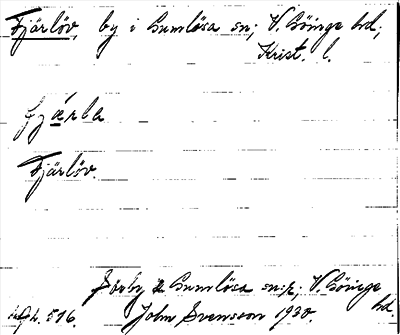 Fjärlöv, by i Gumlösa sn; V. Göinge hd;
Krist. l.
fjárla
Fjärlöv.
Sörby & Gumlösa sn:r; V. Göinge hd.
516. John Svensson 1930.